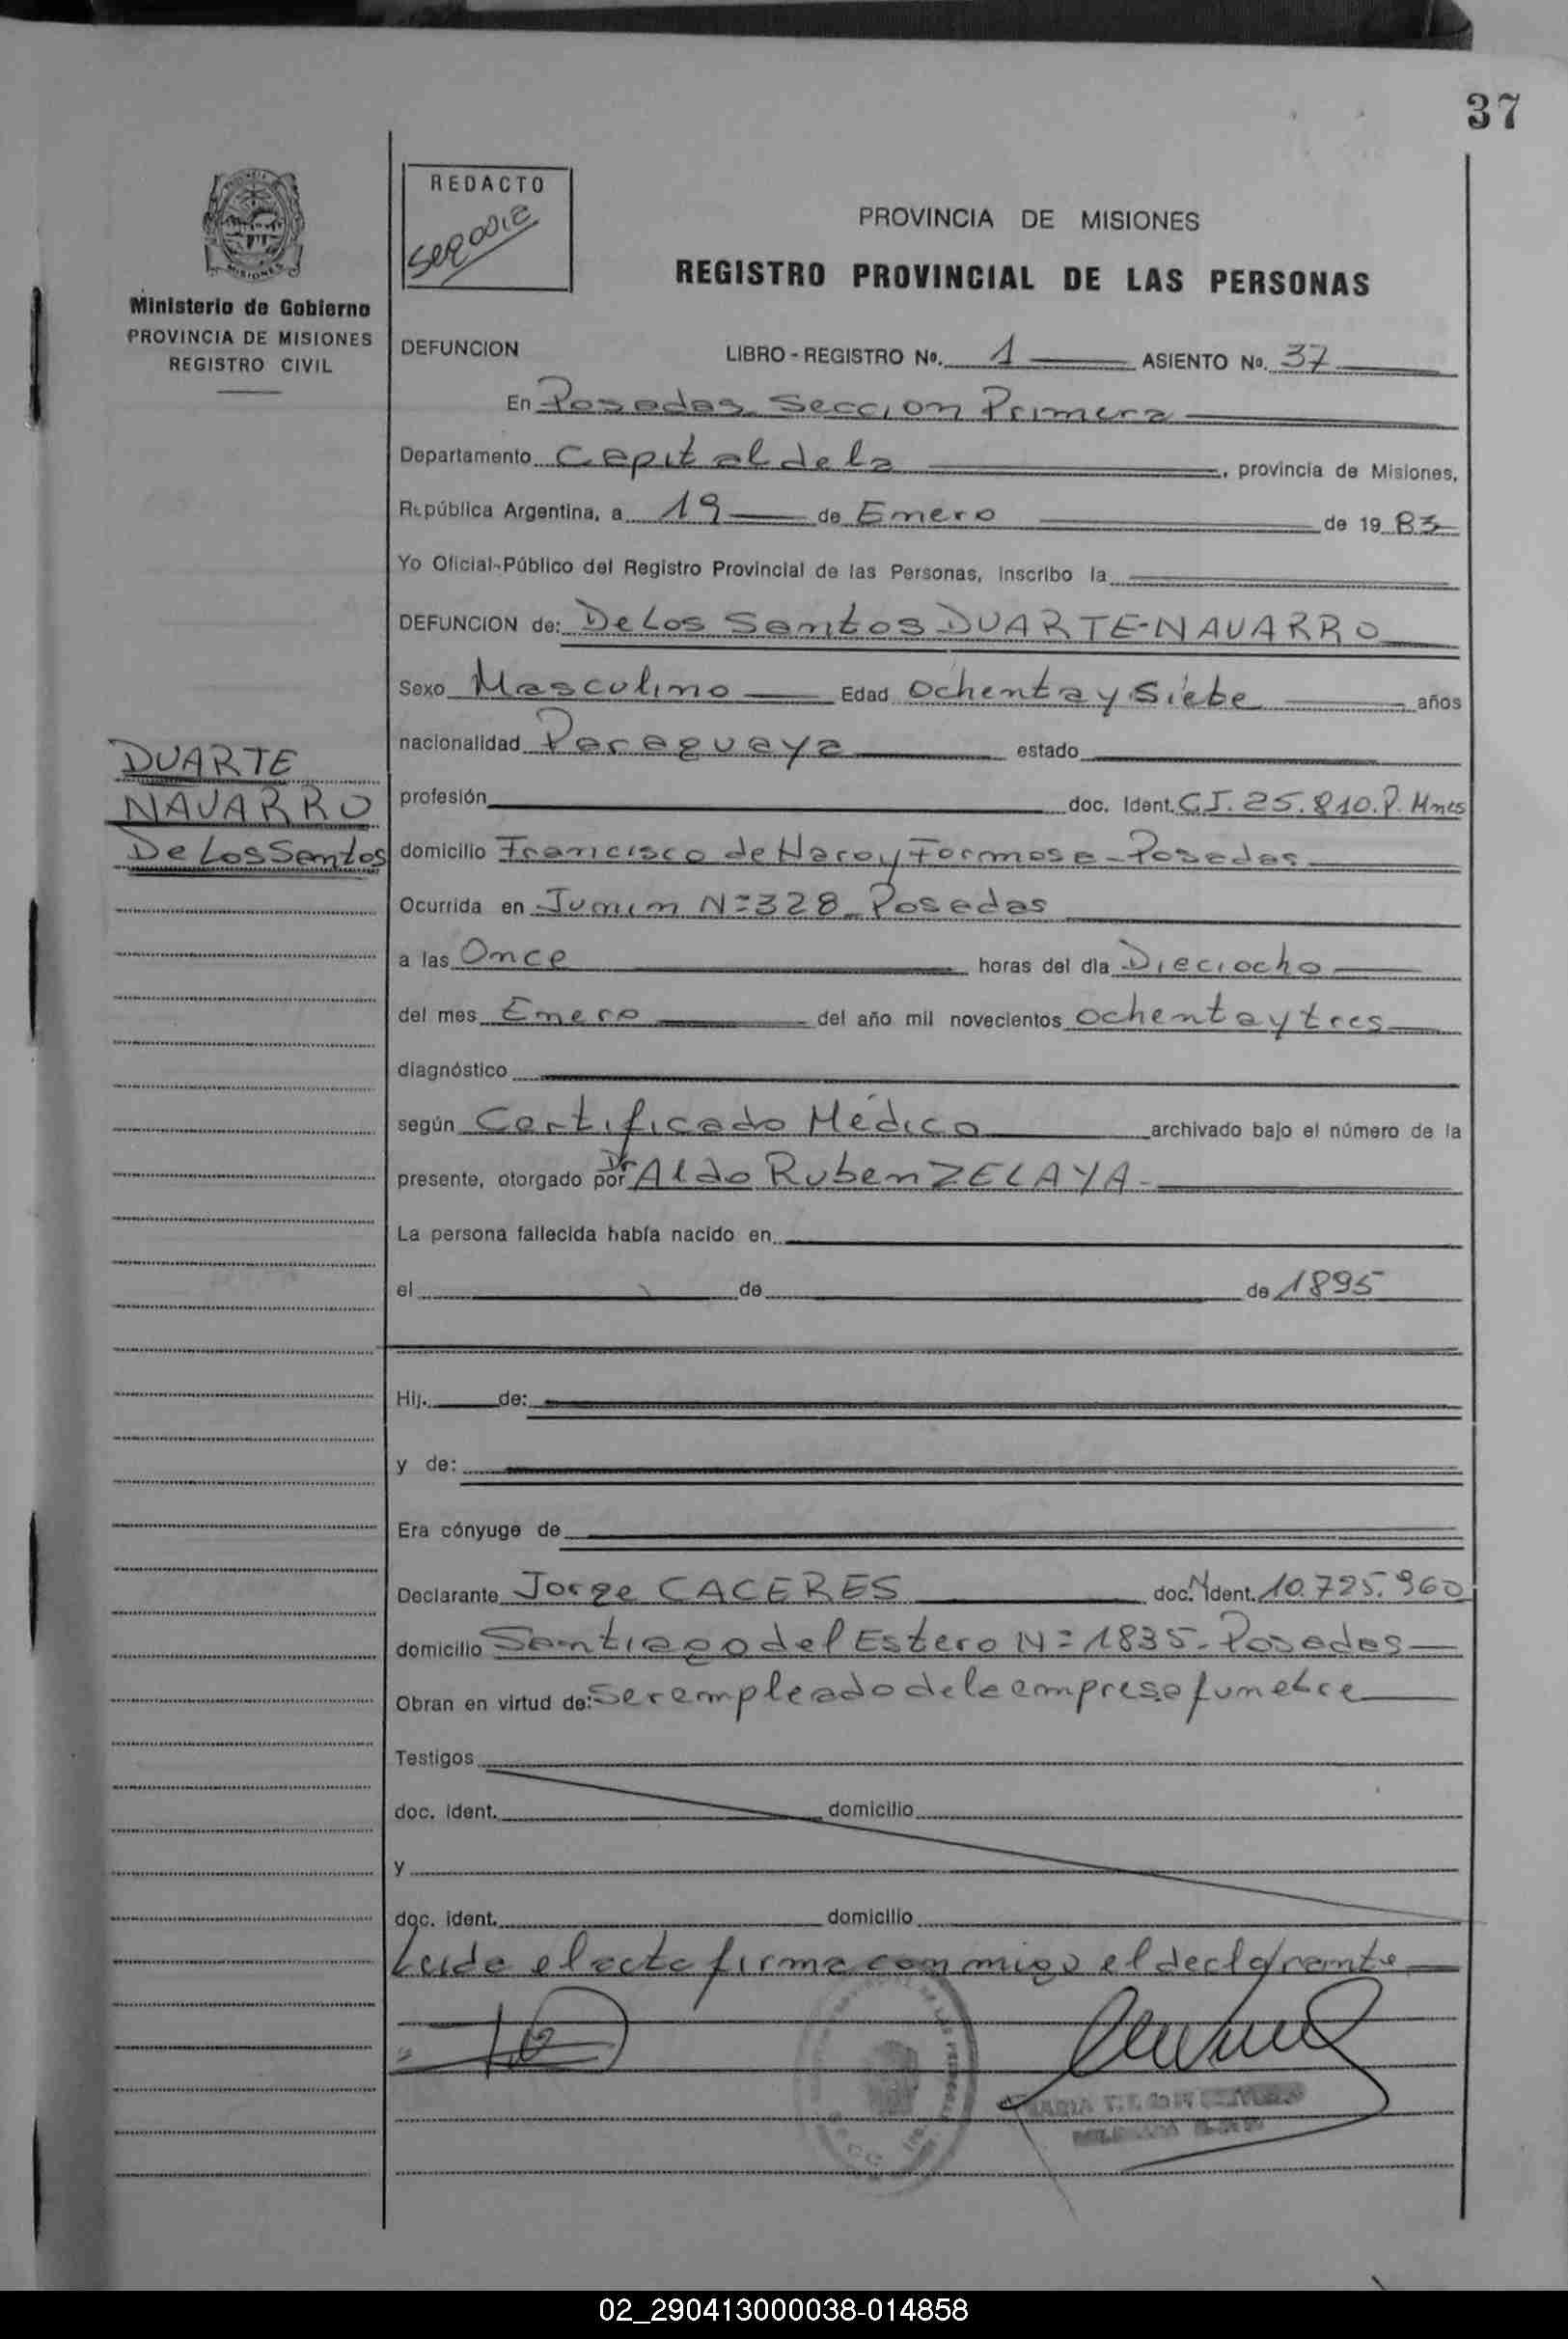 37
REDACTO
PROVINCIA DE MISIONES
REGISTRO PROVINCIAL DE LAS PERSONAS
Ministerio de Gobierno
PROVINCIA DE MISIONES
REGISTRO CIVIL
DEFUNCION LIBRO - REGISTRO Nº. 1 ASIENTO Nº. 37
En Posadas Seccion Primera
Departamento Capital de la , provincia de Misiones,
República Argentina, a 19 de Enero de 19 83
Yo Oficial-Público del Registro Provincial de las Personas, inscribo la
DEFUNCION de: De Los Santos DUARTE-NAVARRO
Sexo Masculino Edad Ochenta y Siete años
nacionalidad Paraguaya estado
DUARTE
NAVARRO
De Los Santos
profesión doc. Ident. C.I. 25.810.P. Mnes
domicilio Francisco de Haro y Formosa - Posadas
Ocurrida en Junin Nº 328 Posadas
a las Once horas del día Dieciocho
del mes Enero del año mil novecientos ochenta y tres
diagnóstico
según Certificado Médico archivado bajo el número de la
presente, otorgado por Dr Aldo Ruben ZELAYA -
La persona fallecida había nacido en
el de de 1895
Hij. de:
y de:
Era cónyuge de
Declarante Jorge CACERES doc. Ident. 10.725.960
domicilio Santiago del Estero Nº 1835 - Posadas
Obran en virtud de: Ser empleado de la empresa funebre
Testigos
doc. ident. domicilio
y
doc. ident. domicilio
Leida el acta firma conmigo el declarante
02_290413000038-014858